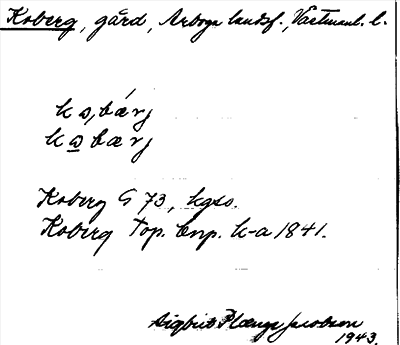 Koberg, gård, Arboga landsf., Västmanl. l.
kɷ,bárj
kɷbærj
Koberg G 73, kgso.
Koberg Top. Corp. k-a 1841.
Sigbrit Plænge Jacobson
1943.